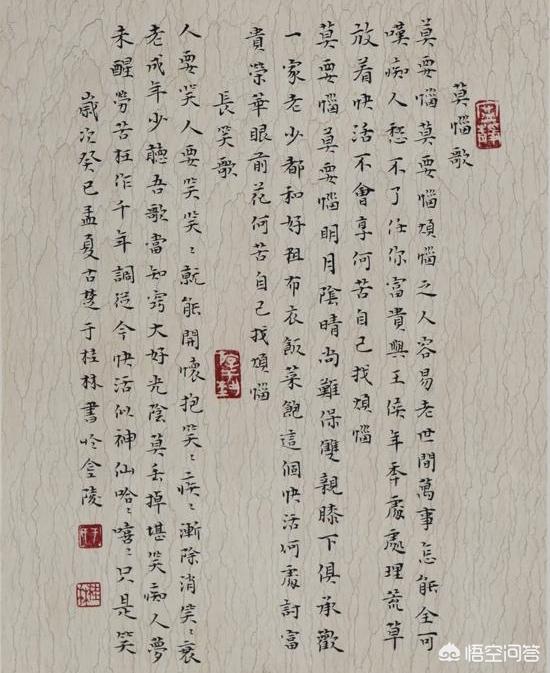 莫惱歌
莫要惱莫要惱煩惱之人容易老世間萬事怎能全可
嘆痴人愁不了任你富貴與王侯年年處處理荒草
放着快活不會享何苦自己找煩惱
莫要惱莫要惱明月陰晴尚難保雙親膝下俱承歡
一家老少都和好粗布衣飯菜飽這個快活何處討富
貴榮華眼前花何苦自己找煩惱
長笑歌
人要笑人要笑笑〻就能開懷抱笑〻疾〻漸除消笑〻衰
老成年少聽吾歌當知竅大好光陰莫丟掉堪笑痴人夢
未醒勞苦枉作千年調從今快活似神仙哈〻嘻〻只是笑
歲次癸巳孟夏古楚于桂林書於金陵
悟空问答